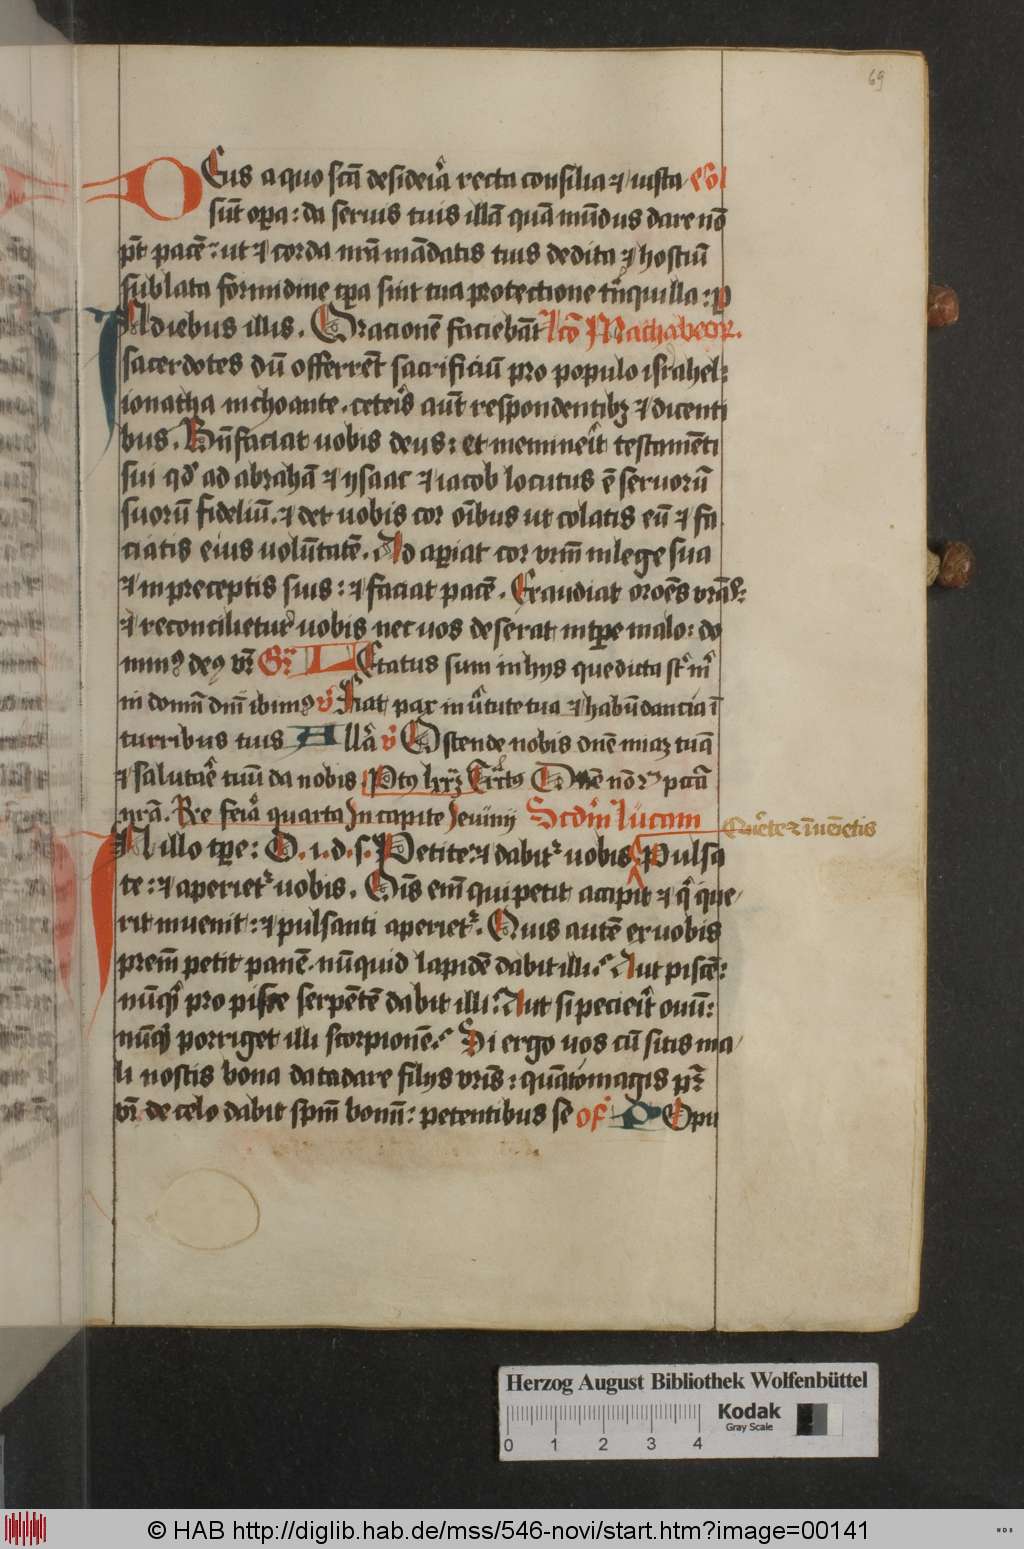 69
DEus a quo scā desideͥa recta consilia ⁊ iusta cōl
sūt opa : da seruis tuis illā quā mūdus dare nō
pt̄ pacē : ut ⁊ corda nrā mādatis tuis dedita ⁊ hostiū
sublata formidine tpa sint tua protectione tͣnquilla : p
IN diebus illis . Oracionē faciebāt lcō Machabeoꝝ .
sacerdotes dū offerrēt sacrificiū pro populo israhel :
ionatha inchoante . ceteͥs aūt respondentibꝫ ⁊ dicenti
bus . Bn̄faciat uobis deus : et memineͥt testamēti
sui qd̓ ad abrahā ⁊ ysaac ⁊ iacob locutus ē seruorū
suorū fideliū . ⁊ det uobis cor oībus ut colatis eū ⁊ fa
ciatis eius uolūtatē . Ad apiat cor vrm̄ in lege sua
⁊ in preceptis suis : ⁊ faciat pacē . Exaudiat oroēs vrās :
⁊ reconcilietur uobis nec uos deserat in tpe malo : do
minꝰ deꝰ vr̄ Gr̄ LEtatus sum in hys que dicta st̄ mͥ
in domū dnī ibimꝰ v̓ Fiat pax in uͥtute tua ⁊ habūdancia ī
turribus tuis Allā v̓ Ostende nobis dnē miaꝫ tuā
⁊ salutaͤ tuū da nobis Tͣctꝰ Dnē nō pctā
nrā . Re feiͣa quarta In capite Ieiunij Scdm̄ lucam
Quͤrite ⁊ īuēietis
IN illo tpe : D . i . d . s . Petite ⁊ dabitᷣ uobis Pulsa
te : ⁊ aperietᷣ uobis . Oīs em̄ qui petit accipit ⁊ qͥ que
rit inuenit : ⁊ pulsanti aperietᷣ . Quis autē ex uobis
prem̄ petit panē . nūquid lapidē dabit illi Aut piscē :
nūqͥd pro pisce serpētē dabit illi Aut si pecieͥt ouū :
nūqͥd porriget illi scorpionē Si ergo uos cū sitis ma
li nostis bona data dare filys vrīs : quātomagis pr̄
vr̄ de celo dabit spm̄ bonū : petentibus se of̓ POpu
Herzog August Bibliothek Wolfenbüttel
Kodak
Gray Scale
0 1 2 3 4
© HAB http://diglib.hab.de/mss/546-novi/start.htm?image=00141